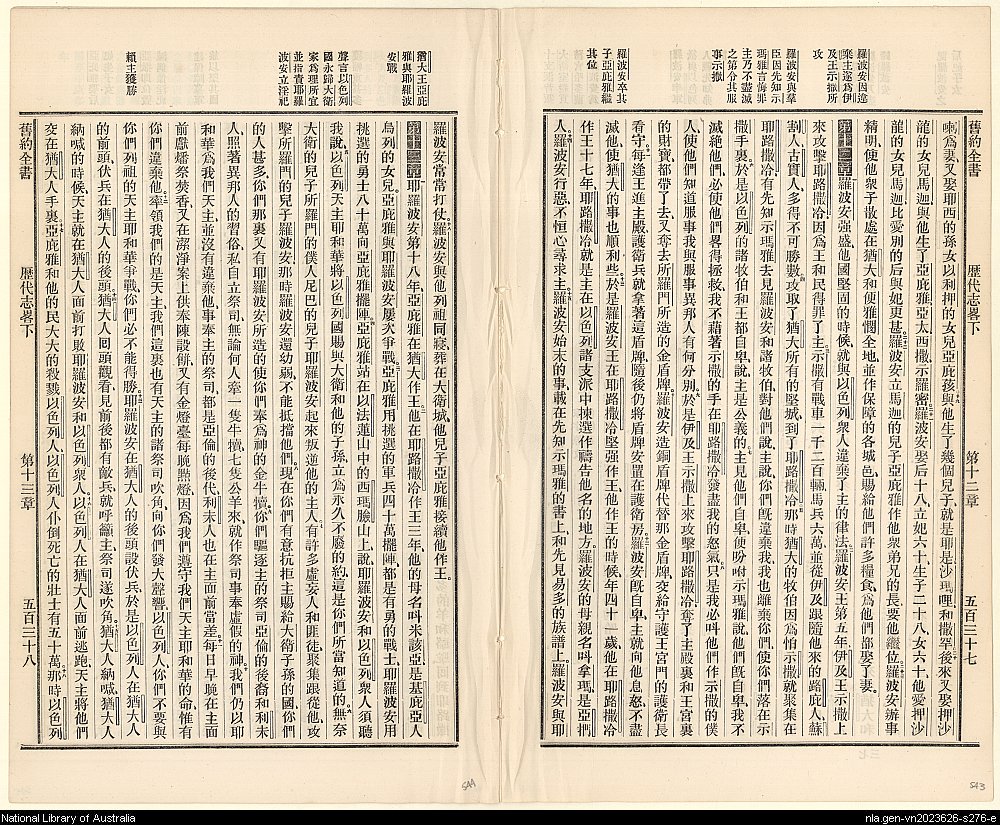 舊約全書
歷代志畧下
第十二章
五百三十七
羅波安因違
棄主遂為伊
及王示撒所
攻
羅波安與羣
臣因先知示
瑪雅言悔罪
主乃不盡滅
之第令其服
事示撒
羅波安卒其
子亞庇雅繼
其位
喇為妻又娶耶西的孫女以利押的女兒亞庇孩與他生了幾個兒子就是耶是沙瑪哩和撒罕後來又娶押沙
龍的女兒馬迦與他生了亞庇雅亞太西撒示羅密羅波安娶后十八立妃六十生子二十八女六十他愛押沙
龍的女兒馬迦比愛別的后與妃更甚羅波安立馬迦的兒子亞庇雅作他衆弟兄的長要他繼位羅波安辦事
精明使他衆子散處在猶大和便雅憫全地並作保障的各城邑賜給他們許多糧食為他們都娶了妻
第十二章羅波安強盛他國堅固的時候就與以色列衆人違棄了主的律法羅波安王第五年伊及王示撒上
來攻擊耶路撒冷因為王和民得罪了主示撒有戰車一千二百輛馬兵六萬並從伊及跟隨他來的路庇人蘇
割人古實人多得不可勝數攻取了猶大所有的堅城到了耶路撒冷那時猶大的牧伯因為怕示撒就聚集在
耶路撒冷有先知示瑪雅去見羅波安和諸牧伯對他們說主說你們既違棄我我也離棄你們使你們落在示
撒手裏於是以色列的諸牧伯和王都自卑說主是公義的主見他們自卑便吩咐示瑪雅說他們既自卑我不
滅絶他們必使他們畧得拯救我不藉著示撒的手在耶路撒冷發盡我的怒氣只是我必叫他們作示撒的僕
人使他們知道服事我與服事異邦人有何分別於是伊及王示撒上來攻擊耶路撒冷奪了主殿裏和王宮裏
的財寶都帶了去又奪去所羅門所造的金盾牌羅波安造銅盾牌代替那金盾牌交給守護王宮門的護衛長
看守每逢王進主殿護衛兵就拿著這盾牌隨後仍將盾牌安置在護衛房羅波安既自卑主就向他息怒不盡
滅他使猶大的事也順利些於是羅波安王在耶路撒冷堅强作王他作王的時候年四十一歲他在耶路撒冷
作王十七年耶路撒冷就是主在以色列諸支派中揀選作禱告他名的地方羅波安的母親名叫拿瑪是亞捫
人羅波安行惡不恒心尋求主羅波安始末的事載在先知示瑪雅的書上和先見易多的族譜上羅波安與耶
猶大王亞庇
雅與耶羅波
安戰
聲言以色列
國永歸大衛
家為理所宜
並指責耶羅
波安立淫祀
賴主獲勝
羅波安常常打仗羅波安與他列祖同寢葬在大衛城他兒子亞庇雅接續他作王
第十三章耶羅波安第十八年亞庇雅在猶大作王他在耶路撒冷作王三年他的母名叫米該亞是基庇亞人
烏列的女兒亞庇雅與耶羅波安屢次爭戰亞庇雅用挑選的軍兵四十萬擺陣都是有勇的戰士耶羅波安用
挑選的勇士八十萬向亞庇雅擺陣亞庇雅站在以法蓮山中的西瑪臉山上說耶羅波安和以色列衆人須聽
我說以色列天主耶和華將以色列國賜與大衛和他的子孫立為永久不廢的約這是你們所當知道的無奈
大衛的兒子所羅門的僕人尼巴的兒子耶羅波安起來叛逆他的主人有許多虛妄人和匪徒聚集跟從他攻
擊所羅門的兒子羅波安那時羅波安還幼弱不能抵擋他們現在你們有意抗拒主賜給大衛子孫的國你們
的人甚多你們那裏又有耶羅波安所造的使你們奉為神的金牛犢你們驅逐主的祭司亞倫的後裔和利未
人照著異邦人的習俗私自立祭司無論何人牽一隻牛犢七隻公羊來就作祭司事奉虛假的神我們仍以耶
和華為我們天主並沒有違棄他事奉主的祭司都是亞倫的後代利未人也在主面前當差每日早晚在主面
前獻燔祭焚香又在潔淨案上供奉陳設餅又有金燈臺每晚點燈因為我們遵守我們天主耶和華的命惟有
你們違棄他率領我們的是天主我們這裏也有天主的諸祭司吹角向你們發大聲響以色列人你們不要與
你們列祖的天主耶和華爭戰你們必不能得勝耶羅波安在猶大人的後頭設伏兵於是以色列人在猶大人
的前頭伏兵在猶大人的後頭猶大人囘頭觀看見前後都有敵兵就呼籲主祭司遂吹角猶大人吶喊猶大人
吶喊的時候天主就在猶大人面前打敗耶羅波安和以色列衆人以色列人在猶大人面前逃跑天主將他們
交在猶大人手裏亞庇雅和他的民大大的殺戮以色列人以色列人仆倒死亡的壯士有五十萬那時以色列
舊約全書
歷代志畧下
第十三章
五百三十八
544
543
National Library of Australia
nla.gen-vn2023626-s276-e